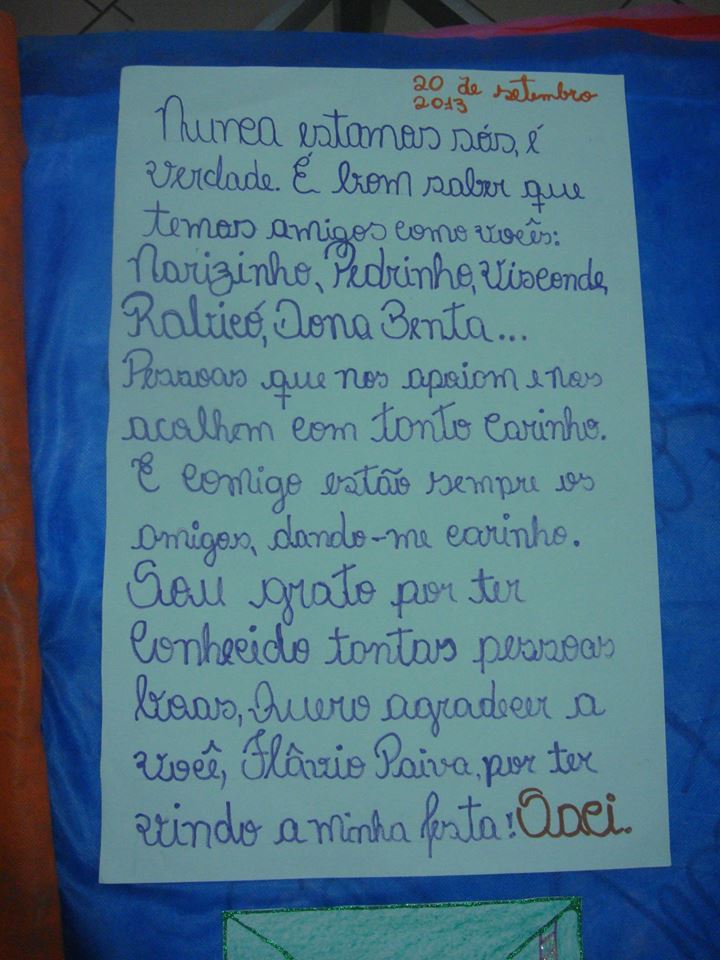 20 de setembro
2013
Nunca estamos sós, é
verdade. É bom saber que
temos amigos como vocês:
Narizinho, Pedrinho, Visconde,
Rabicó, Dona Benta...
Pessoas que nos apoiam e nos
acolhem com tanto carinho.
E comigo estão sempre os
amigos, dando-me carinho.
Sou grato por ter
conhecido tantas pessoas
boas, Quero agradecer a
você, Flávio Paiva, por ter
vindo a minha festa! Saci.